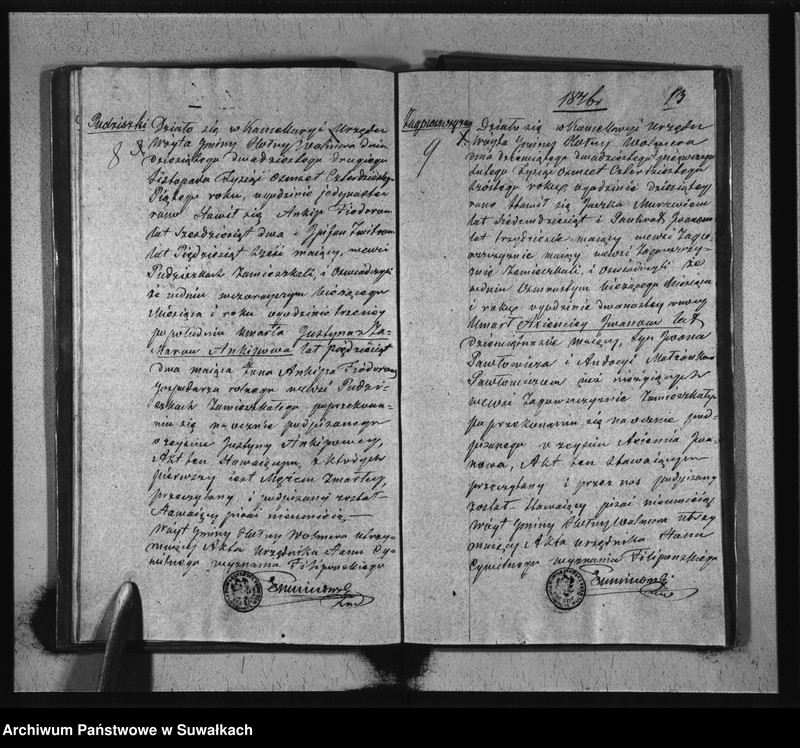 Pudziszki
8
Działo się w Kancellaryi Urzędu
Woyta Gminy Hołny Wolmera dnia
dziesiątego dwudziestego drugiego
Listopada Tysiąc osmset Czterdziestego
Piątego roku, o godzinie jedynastej
rano Stawił się Ankip Fiodorow
lat Sześćdziesiąt dwa i
lat Pięćdziesiąt sześć maiący, we wsi
Pudziszkach Zamieszkali, i Oświadczyli
że w dniu wczorayszym bieżącego
Miesiąca i roku o godzinie trzeciey
po południu Umarła Justyna Za-
Ankipowa lat Pięćdziesiąt
dwa maiąca Żona Ankipa Fiodorow
Gospodarza rolnego we wsi Pudzi-
szkach Zamieszkałego po przekona-
niu się naocznie podpisanego
o zeyściu Justyny Ankipowey,
Akt ten Stawaiącym, z których
pierwszy iest Mężem Zmarłey,
przeczytany i podpisany został
Stawaiący pisać nieumieią,—
Woyt Gminy Hołny Wolmera utrzy-
muiący Akta Urzędnika Stanu Cy-
wilnego wyznania Filipońskiego
1846 r
13
9
Działo się w Kancellaryi Urzędu
Woyta Gminy Hołny Wolmera
dnia dziewiątego dwudziestego pierwszego
Lutego Tysiąc Osmset Czterdziestego
szóstego roku, o godzinie dziesiątey
rano Stawił się
lat Siedemdziesiąt i Pankrat Iwanow
lat trzydzieście maiący we wsi Zago-
maiący we wsi
Zamieszkali, i Oświadczyli że
w dniu Osmnastym bieżącego Miesiąca
i roku o godzinie dwunastey
Umarł Axieniey Iwanow lat
Dziewiętnaście maiący, Syn Iwana
Pawłowicza i Audocyi
Pawłowiczów już nieżyiących
we wsi Zamieszkały
po przekonaniu się naocznie pod-
pisanego o zeyściu Axienia Iwa-
nowa, Akt ten Stawaiącym
przeczytany i przez nas podpisany
został Stawaiący pisać nieumieią
Woyt Gminy Hołny Wolmera utrzy-
muiący Akta Urzędnika Stanu
Cywilnego wyznania Filipońskiego
Archiwum Państwowe w Suwałkach